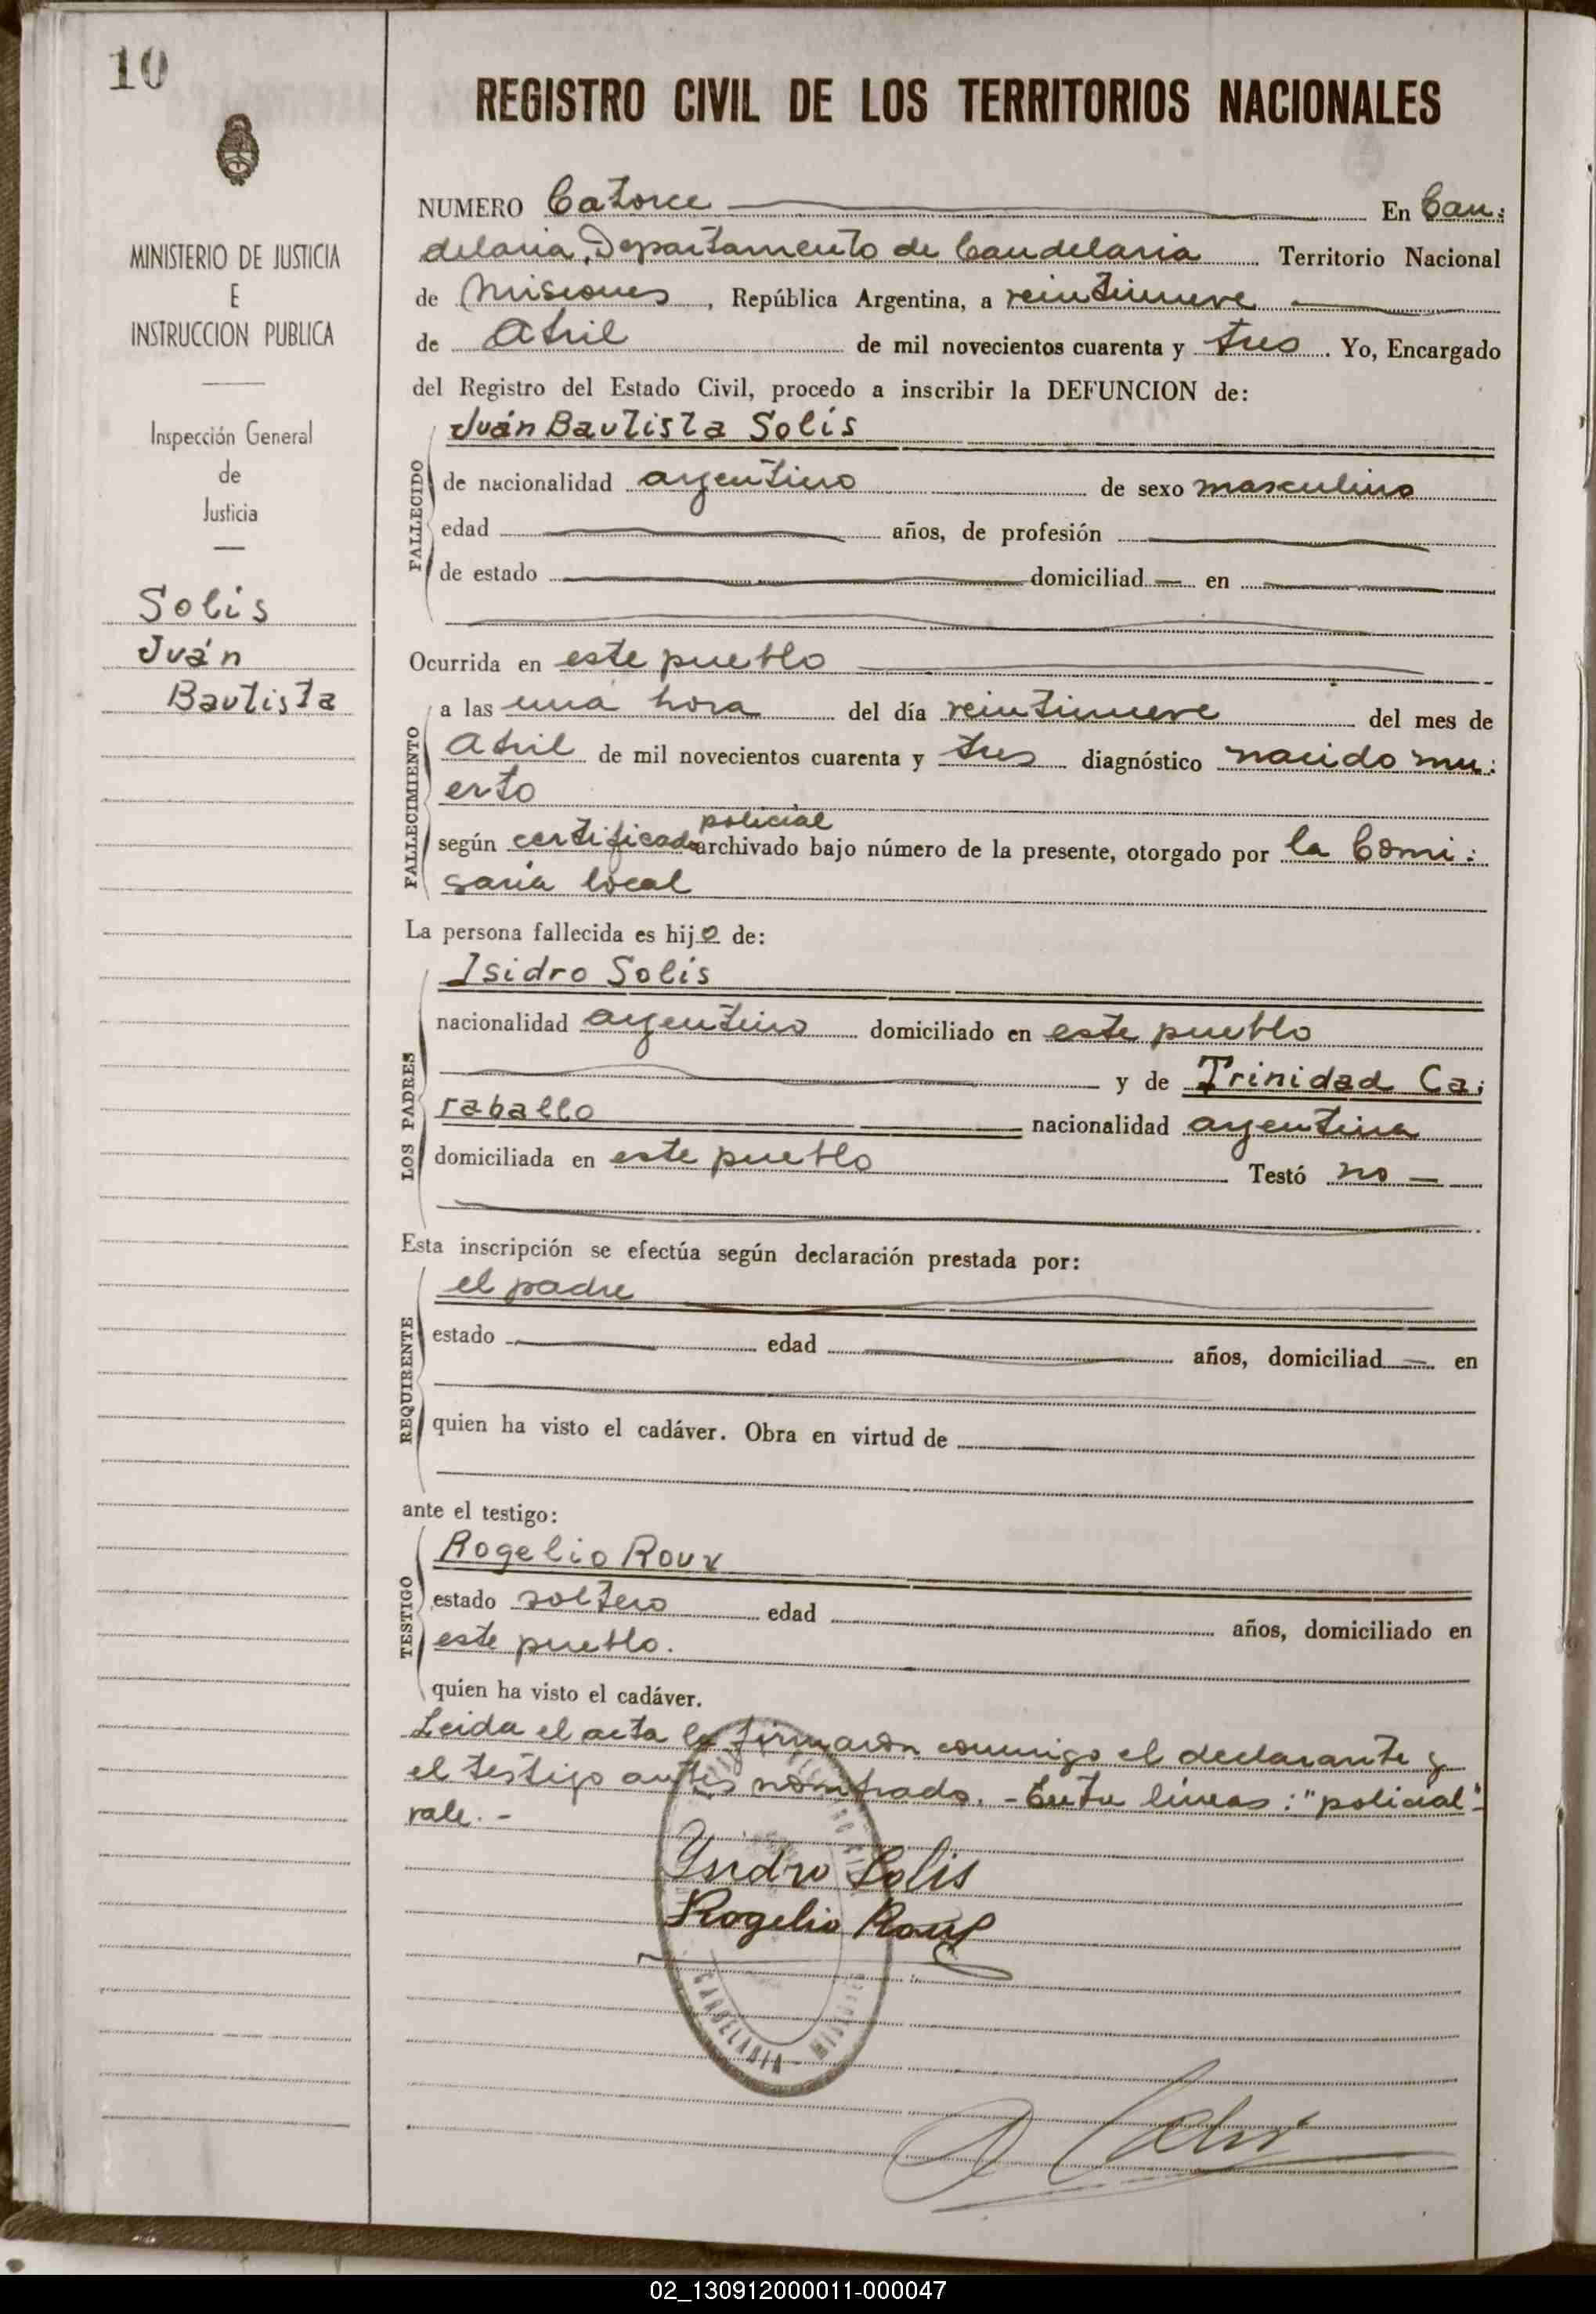 10
REGISTRO CIVIL DE LOS TERRITORIOS NACIONALES
MINISTERIO DE JUSTICIA
E
INSTRUCCION PUBLICA
Inspección General
de
Justicia
Solís
Juán
Bautista
NUMERO Catorce En Can:
delaria, Departamento de Candelaria Territorio Nacional
de Misiones, República Argentina, a veintinueve
de Abril de mil novecientos cuarenta y tres. Yo, Encargado
del Registro del Estado Civil, procedo a inscribir la DEFUNCION de:
Juán Bautista Solís
FALLECIDO
de nacionalidad argentino de sexo masculino
edad años, de profesión
de estado domiciliad en
Ocurrida en este pueblo
FALLECIMIENTO
a las una hora del día veintinueve del mes de
Abril de mil novecientos cuarenta y tres diagnóstico nacido mu:
erto
policial
según certificado archivado bajo número de la presente, otorgado por la Comi:
saría local
La persona fallecida es hijo de:
LOS PADRES
Isidro Solís
nacionalidad argentino domiciliado en este pueblo
y de Trinidad Ca:
raballo nacionalidad argentina
domiciliada en este pueblo Testó no
Esta inscripción se efectúa según declaración prestada por:
REQUIRENTE
el padre
estado edad años, domiciliad en
quien ha visto el cadáver. Obra en virtud de
ante el testigo:
TESTIGO
Rogelio Roux
estado soltero edad años, domiciliado en
este pueblo.
quien ha visto el cadáver.
Leida el acta la firmaron conmigo el declarante y
el testigo antes nombrado. - Entre líneas: "policial" -
vale. -
Ysidro Solis
Rogelio Roux
CANDELARIA - MISIONES
02_130912000011-000047